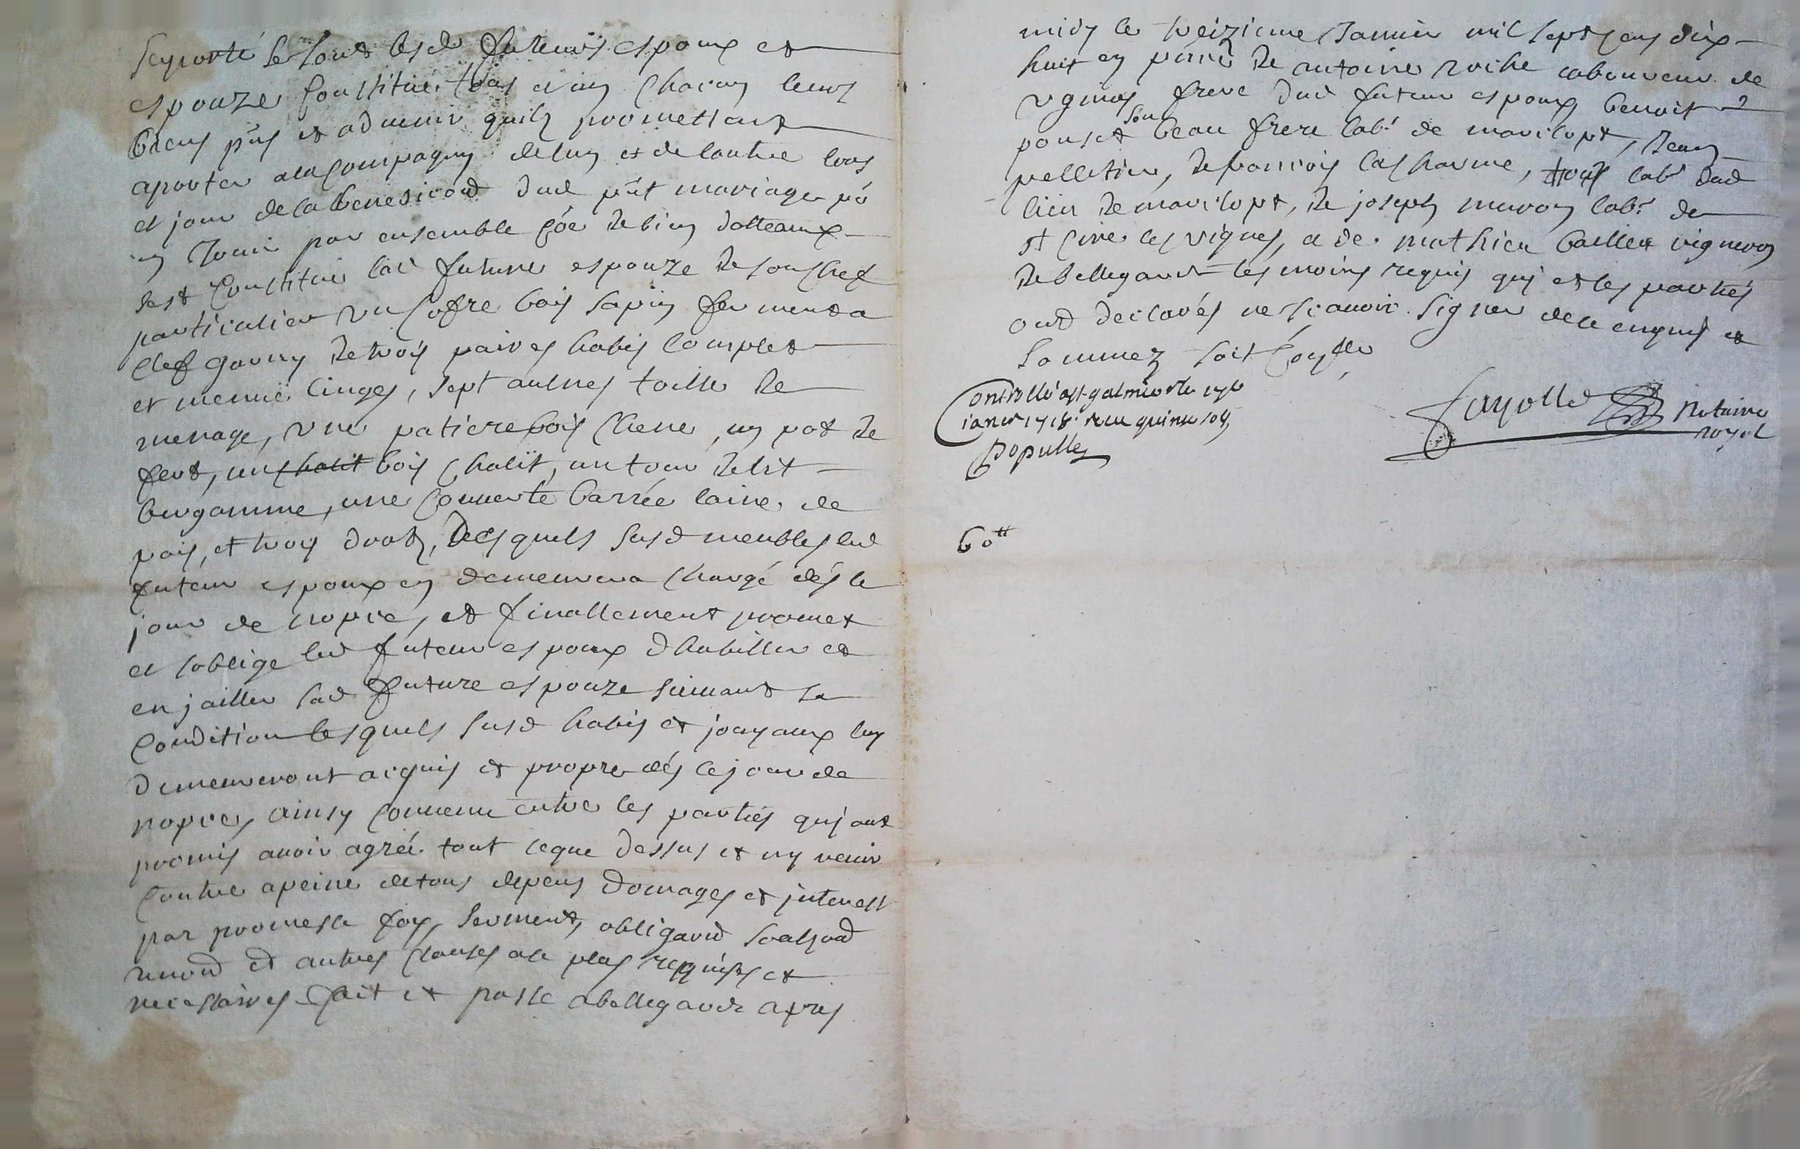 se sont lesd futeurs espoux et
espouze constitué tous et un chacun leurs
biens pnts et advenir quils promettent
aporter a la compagny de lun et de lautre lors
et jour de la benediond dud pnt mariage pr
en jouir par ensemble coe de bien dotteaux
sest constitué lad future espouze de son chef
particulier un cofre bois sapin fermenta
clef garny de trois paires habis complet
et menue linges, sept aulnes toille de
menage, une patiere bois chene, un pot de
fert, un chalit bois chalit, un tour de lit
bergamme, une couverte barrée laine de
pais, et trois draps, desquels susd meubles led
futeur espoux en demeurera chargé dés le
jour de nopce, et finallement promet
et soblige led futeur espoux dhabiller et
enjailler sad future espouze suivant sa
condition lesquels susd habis et joyaux luy
demeureront acquis et propre dés le jour de
nopces, ainsy convenu entre les parties qui ont
promis avoir agréé tout ceque dessus et ny venir
contre apeine de tous depens domages et interest
par promesse foy, serment, obligaond
renond et autres clauses ale plus requises et
necessaires fait et passé abellegarde apres
midy le treizieme janvier mil sept cens dix
huit en pnce de antoine roche laboureur de
frere dud futeur espoux benoit
ponset son beau frere labr de marclopt, jean
pelletier, de francois lacharme, labr dud
lieu de marclopt, de joseph labr de
st cire les vignes, a de mathieu vigneron
de bellegarde tesmoins requis qui et les parties
ont declarés ne scavoir signer de ce enquis et
sommez soit
Controllé a st galmier le
janer 1718 recu quinze sols
Populle
Fayolle notaire
royal
60tt